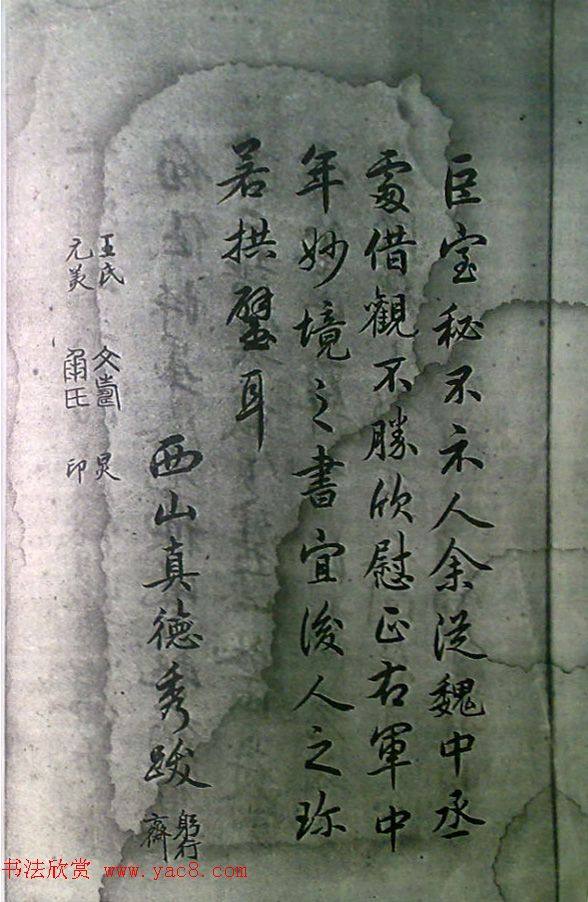 巨室秘不示人余從魏中丞
處借觀不勝欣慰正右軍中
年妙境之書宜後人之珎
若拱璧耳
西山真德秀跋
躬行
齋
王氏
元美
印
书法欣赏 www.yac8.com